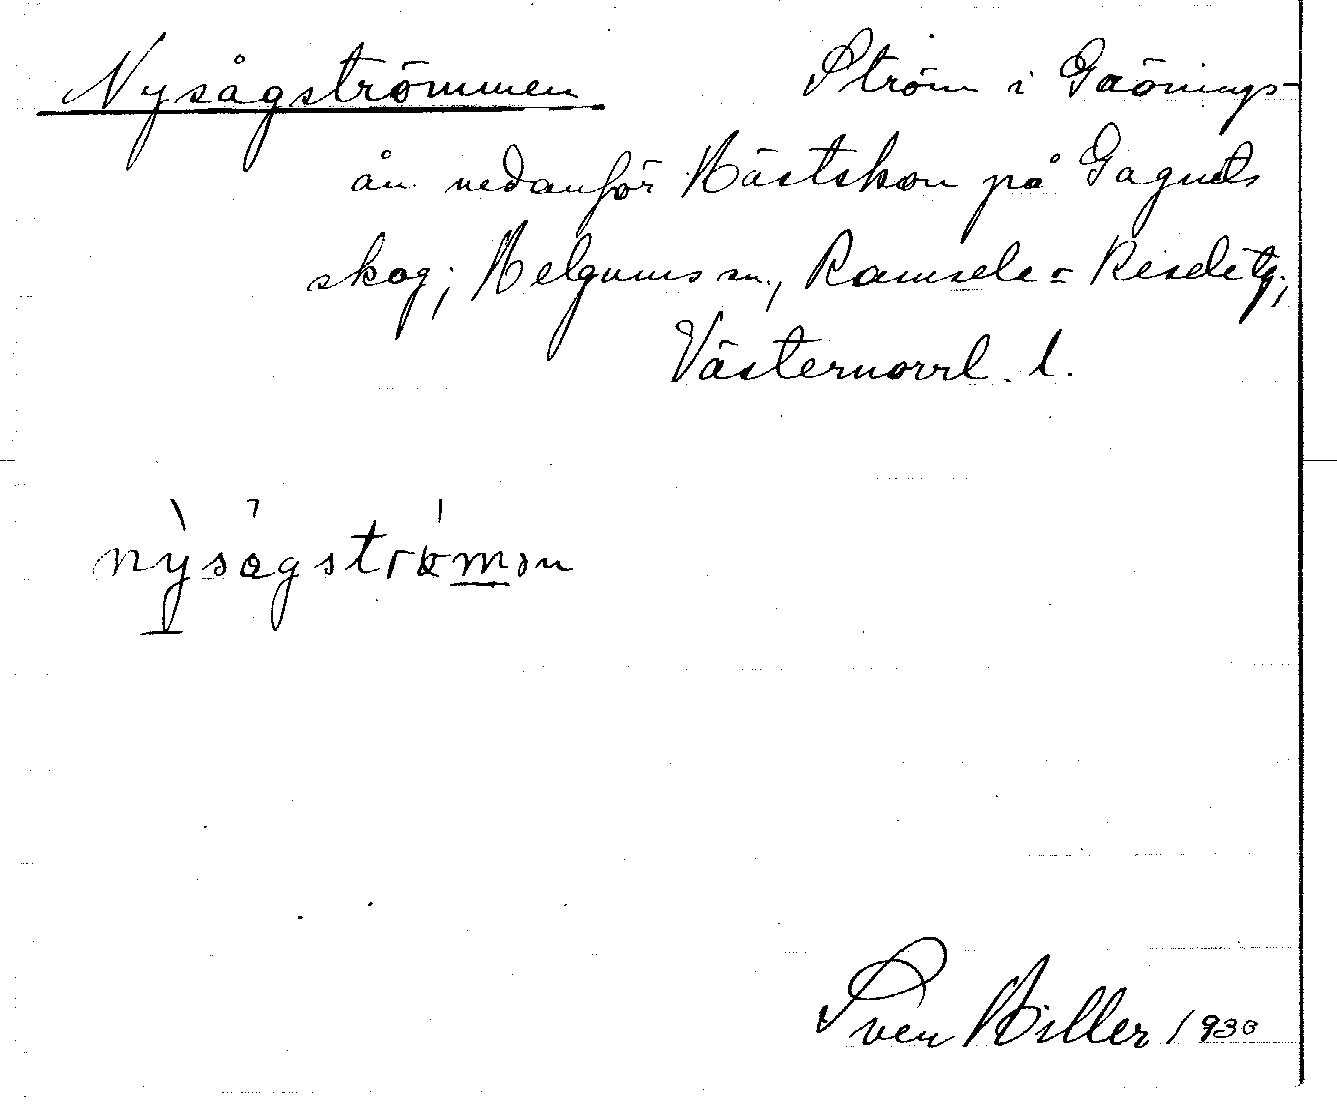 Nysågströmmen Ström i Gaönings-
ån nedanför Hästskon på Gagnets
skog; Helgums sn., Ramsele = Resele tg;
Västernorrl. l.
nỳsågstrømən
Sven Hiller 1930